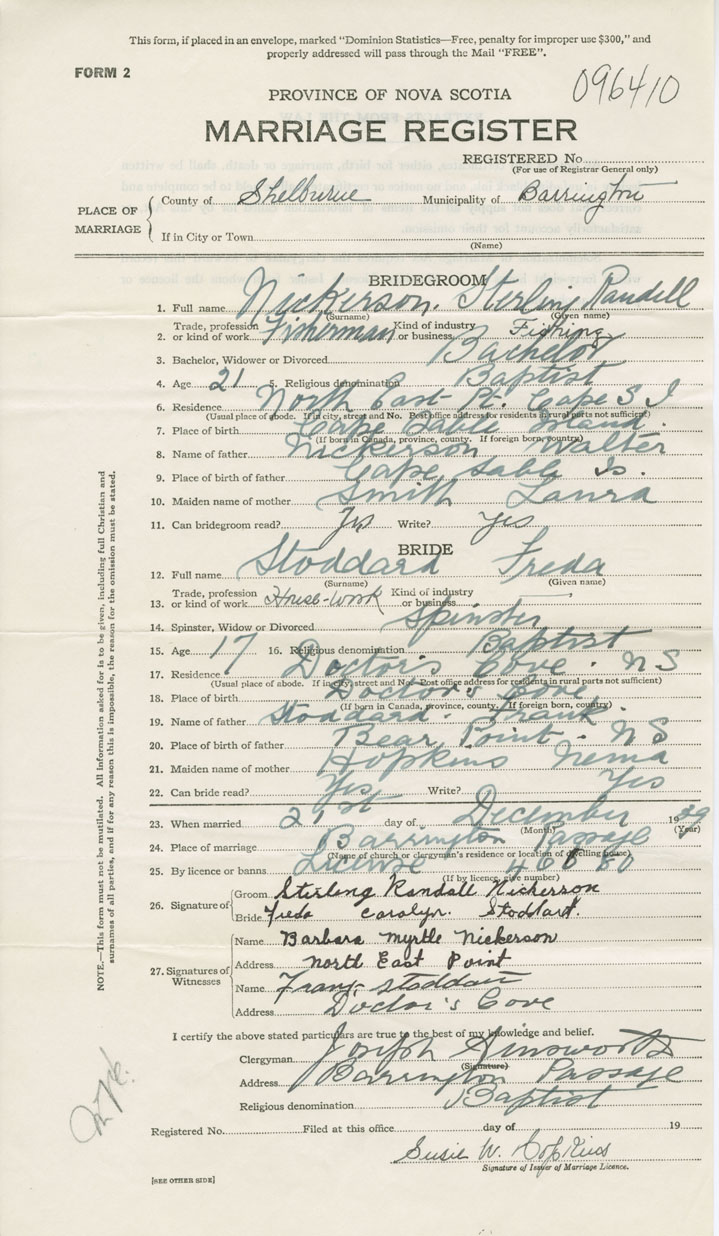 This form, if placed in an envelope, marked "Dominion Statistics—Free, penalty for improper use $300," and
properly addressed will pass through the Mail "FREE".
FORM 2
096410
PROVINCE OF NOVA SCOTIA
MARRIAGE REGISTER
REGISTERED No.
(For use of Registrar General only)
PLACE OF MARRIAGE
County of Shelburne Municipality of Barrington
If in City or Town
(Name)
BRIDEGROOM
1. Full name Nickerson, Sterling Randell
(Surname) (Given name)
2. Trade, profession or kind of work Fisherman Kind of industry or business Fishing
3. Bachelor, Widower or Divorced Bachelor
4. Age 21 5. Religious denomination Baptist
6. Residence North East Pt. Cape S I
(Usual place of abode. If in city, street and No. Post office address for residents in rural parts not sufficient)
7. Place of birth Cape Sable Island.
(If born in Canada, province, county. If foreign born, country)
8. Name of father Nickerson Walter
9. Place of birth of father Cape Sable Is.
10. Maiden name of mother Smith Laura
11. Can bridegroom read? Yes Write? Yes
BRIDE
12. Full name Stoddard Freda
(Surname) (Given name)
13. Trade, profession or kind of work House-Work Kind of industry or business
14. Spinster, Widow or Divorced Spinster
15. Age 17 16. Religious denomination Baptist
17. Residence Doctor's Cove. NS
(Usual place of abode. If in city, street and No. Post office address for residents in rural parts not sufficient)
18. Place of birth Doctor's Cove,
(If born in Canada, province, county. If foreign born, country)
19. Name of father Stoddard. Frank.
20. Place of birth of father Bear Point. NS
21. Maiden name of mother Hopkins Nema
22. Can bride read? Yes Write? Yes
23. When married 21st day of December 1939
(Month) (Year)
24. Place of marriage Barrington Passage
(Name of church or clergyman's residence or location of dwelling house)
25. By licence or banns License
(If by licence, give number)
26. Signature of
Groom Stirling Randall Nickerson
Bride Freda Carolyn. Stoddard.
27. Signatures of Witnesses
Name Barbara Myrtle Nickerson
Address North East Point
Name Stoddart
Address Doctor's Cove
I certify the above stated particulars are true to the best of my knowledge and belief.
Clergyman Joseph Ainsworth
(Signature)
Address Barrington Passage
Religious denomination Baptist
Registered No. Filed at this office day of 19
Susie W. Hopkins
Signature of Issuer of Marriage Licence.
[SEE OTHER SIDE]
NOTE.—This form must not be mutilated. All information asked for is to be given, including full Christian and
surnames of all parties, and if for any reason this is impossible, the reason for the omission must be stated.